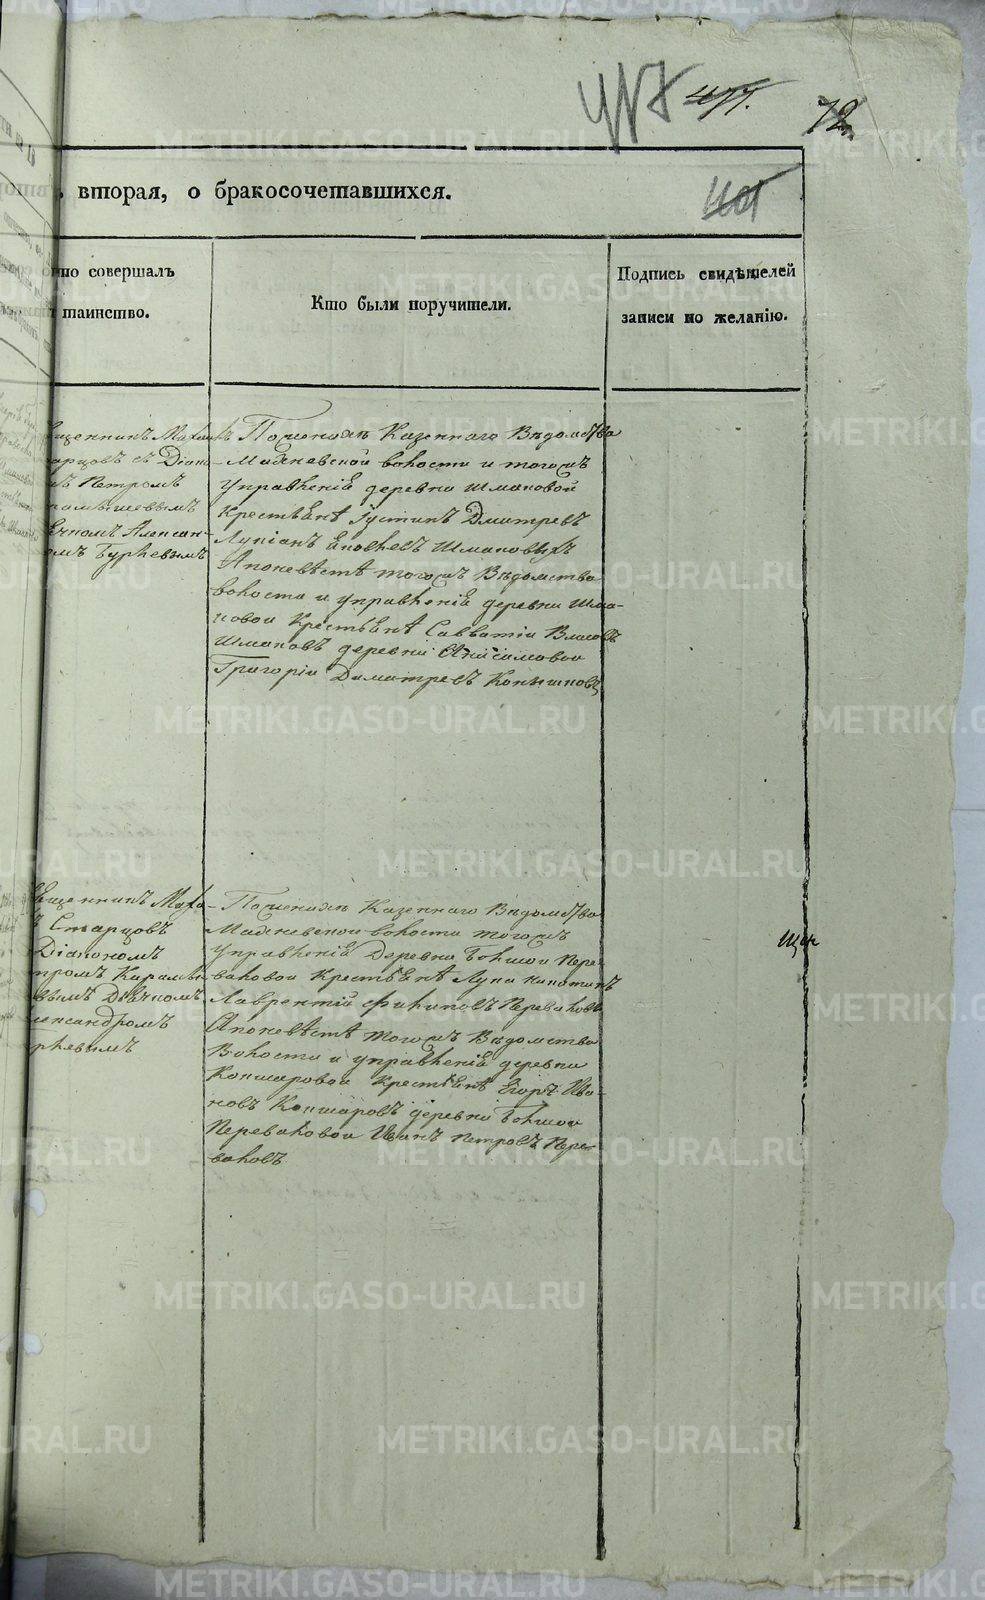 477.
72
401
ь вторая, о бракосочетавшихся.
Кто совершалъ
таинство.
Кто были поручители.
Подпись свидѣтелей
записи по желанію.
Священникъ Матѳей
Старцовъ съ Діако-
номъ Петромъ
Дьячкомъ Алексан-
дромъ
По женихѣ Казеннаго Вѣдомства
Маяневской волости и тогожъ
Управленія деревни Шмаковой
Крестьяне Іустинъ Дмитревъ
Лупіанъ Яковлевъ Шмаковыхъ
А по невѣстѣ тогожъ Вѣдомства
волости и управленія деревни Шма-
ковой Крестьяне Савватій Власовъ
Шмаковъ деревни Анисимовой
Григорій Димитревъ
Священникъ Матѳе-
й Старцовъ
Діакономъ
Петромъ
Дьячкомъ
Александромъ
По женихѣ Казеннаго Вѣдомства
Маяневской волости тогожъ
управленія Деревни Большой Пере-
валовой Крестьяне Лупа Никитинъ
Лаврентій Филиповъ Переваловы
А по невѣстѣ тогожъ Вѣдомства
Волости и управленія деревни
Кокшаровой Крестьяне Егоръ Ива-
новъ Кокшаровъ деревни Большой
Переваловой Иванъ Петровъ Пере-
валовъ
METRIKI.GASO-URAL.RU